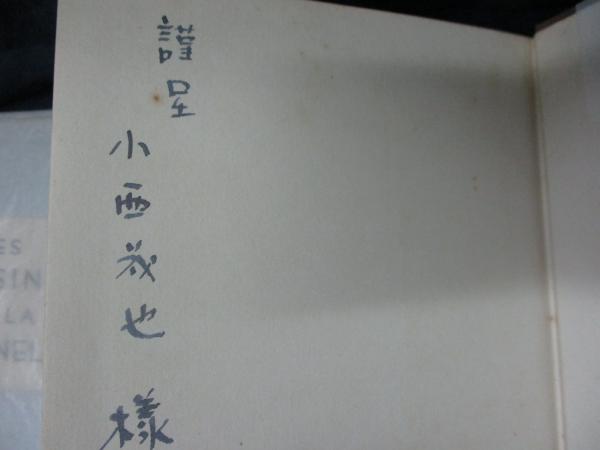 謹呈
小西茂也 様
ES
SIN
LA
NEL